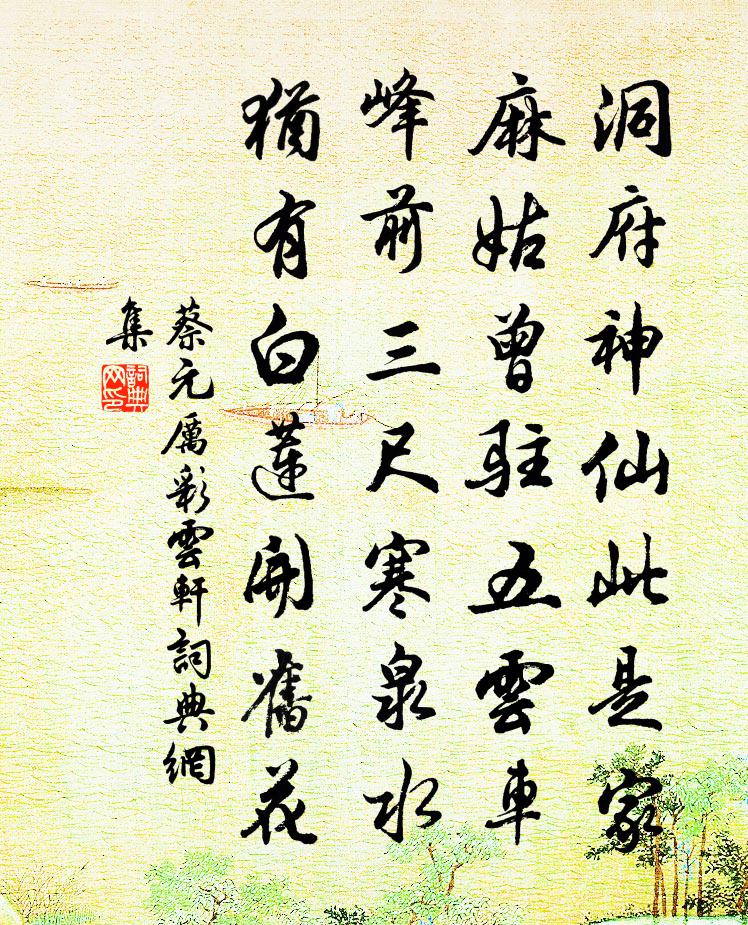 洞府神仙此是家
麻姑曾駐五雲車
峰前三尺寒泉水
猶有白蓮開舊花
蔡元厲彩雲軒詞典網
集
詞典
网印